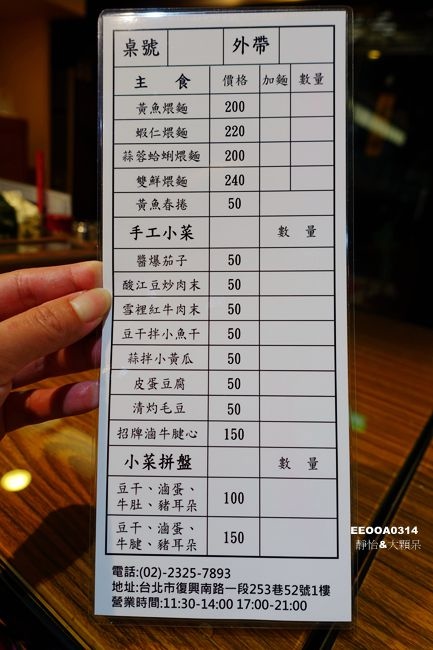 桌號 外帶
主 食 價格 加麵 數量
黃魚煨麵 200
蝦仁煨麵 220
蒜蓉蛤蜊煨麵 200
雙鮮煨麵 240
黃魚春捲 50
手工小菜 數 量
醬爆茄子 50
酸江豆炒肉末 50
雪裡紅牛肉末 50
豆干拌小魚干 50
蒜拌小黃瓜 50
皮蛋豆腐 50
清灼毛豆 50
招牌滷牛腱心 150
小菜拼盤 數 量
豆干、滷蛋、
牛肚、豬耳朵 100
豆干、滷蛋、
牛腱、豬耳朵 150
電話:(02)-2325-7893
地址:台北市復興南路一段253巷52號1樓
營業時間:11:30-14:00 17:00-21:00
EEOOA0314
靜怡&大顆呆